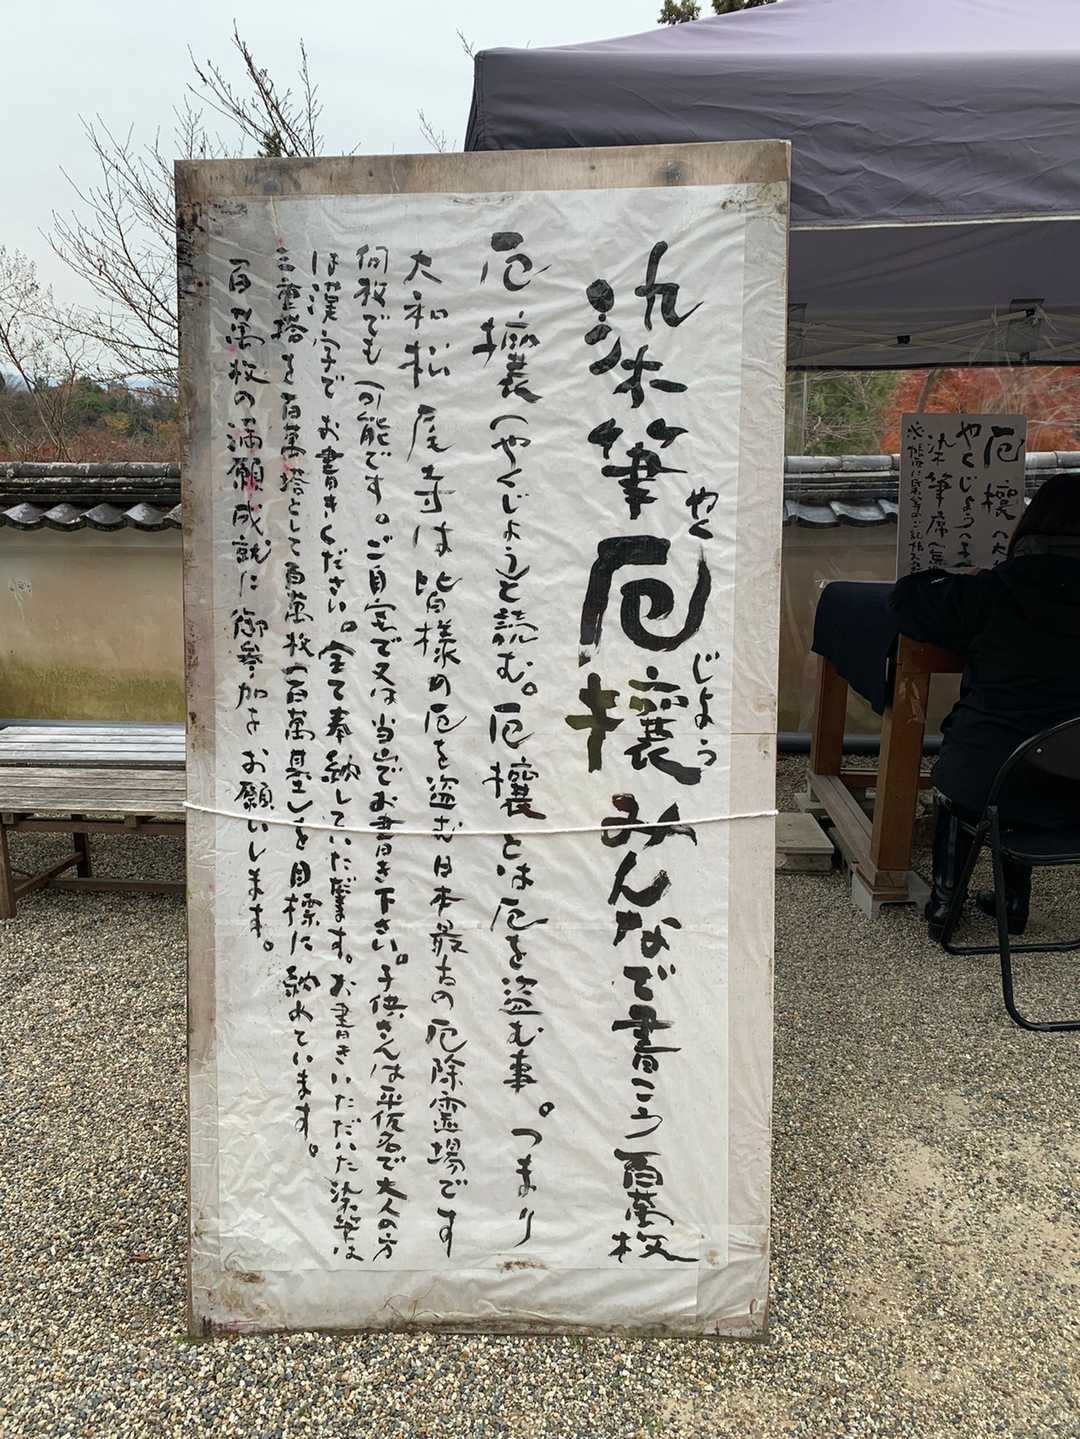 染筆厄攘みんなで書こう百萬枚
やく
じょう
厄攘(やくじょう)と読む。厄攘とは厄を盗む事。つまり
大和松尾寺は皆様の厄を盗む日本最古の厄除霊場です
何枚でも可能です。ご自宅で又は当山でお書き下さい。子供さんは平仮名で大人の方
は漢字でお書きください。全て奉納していただきます。お書きいただいた染筆は
三重塔を百萬塔として百萬枚(百萬基)を目標に納めています。
百萬枚の満願成就に御参加をお願いします。
厄攘
やくじょう
染筆席